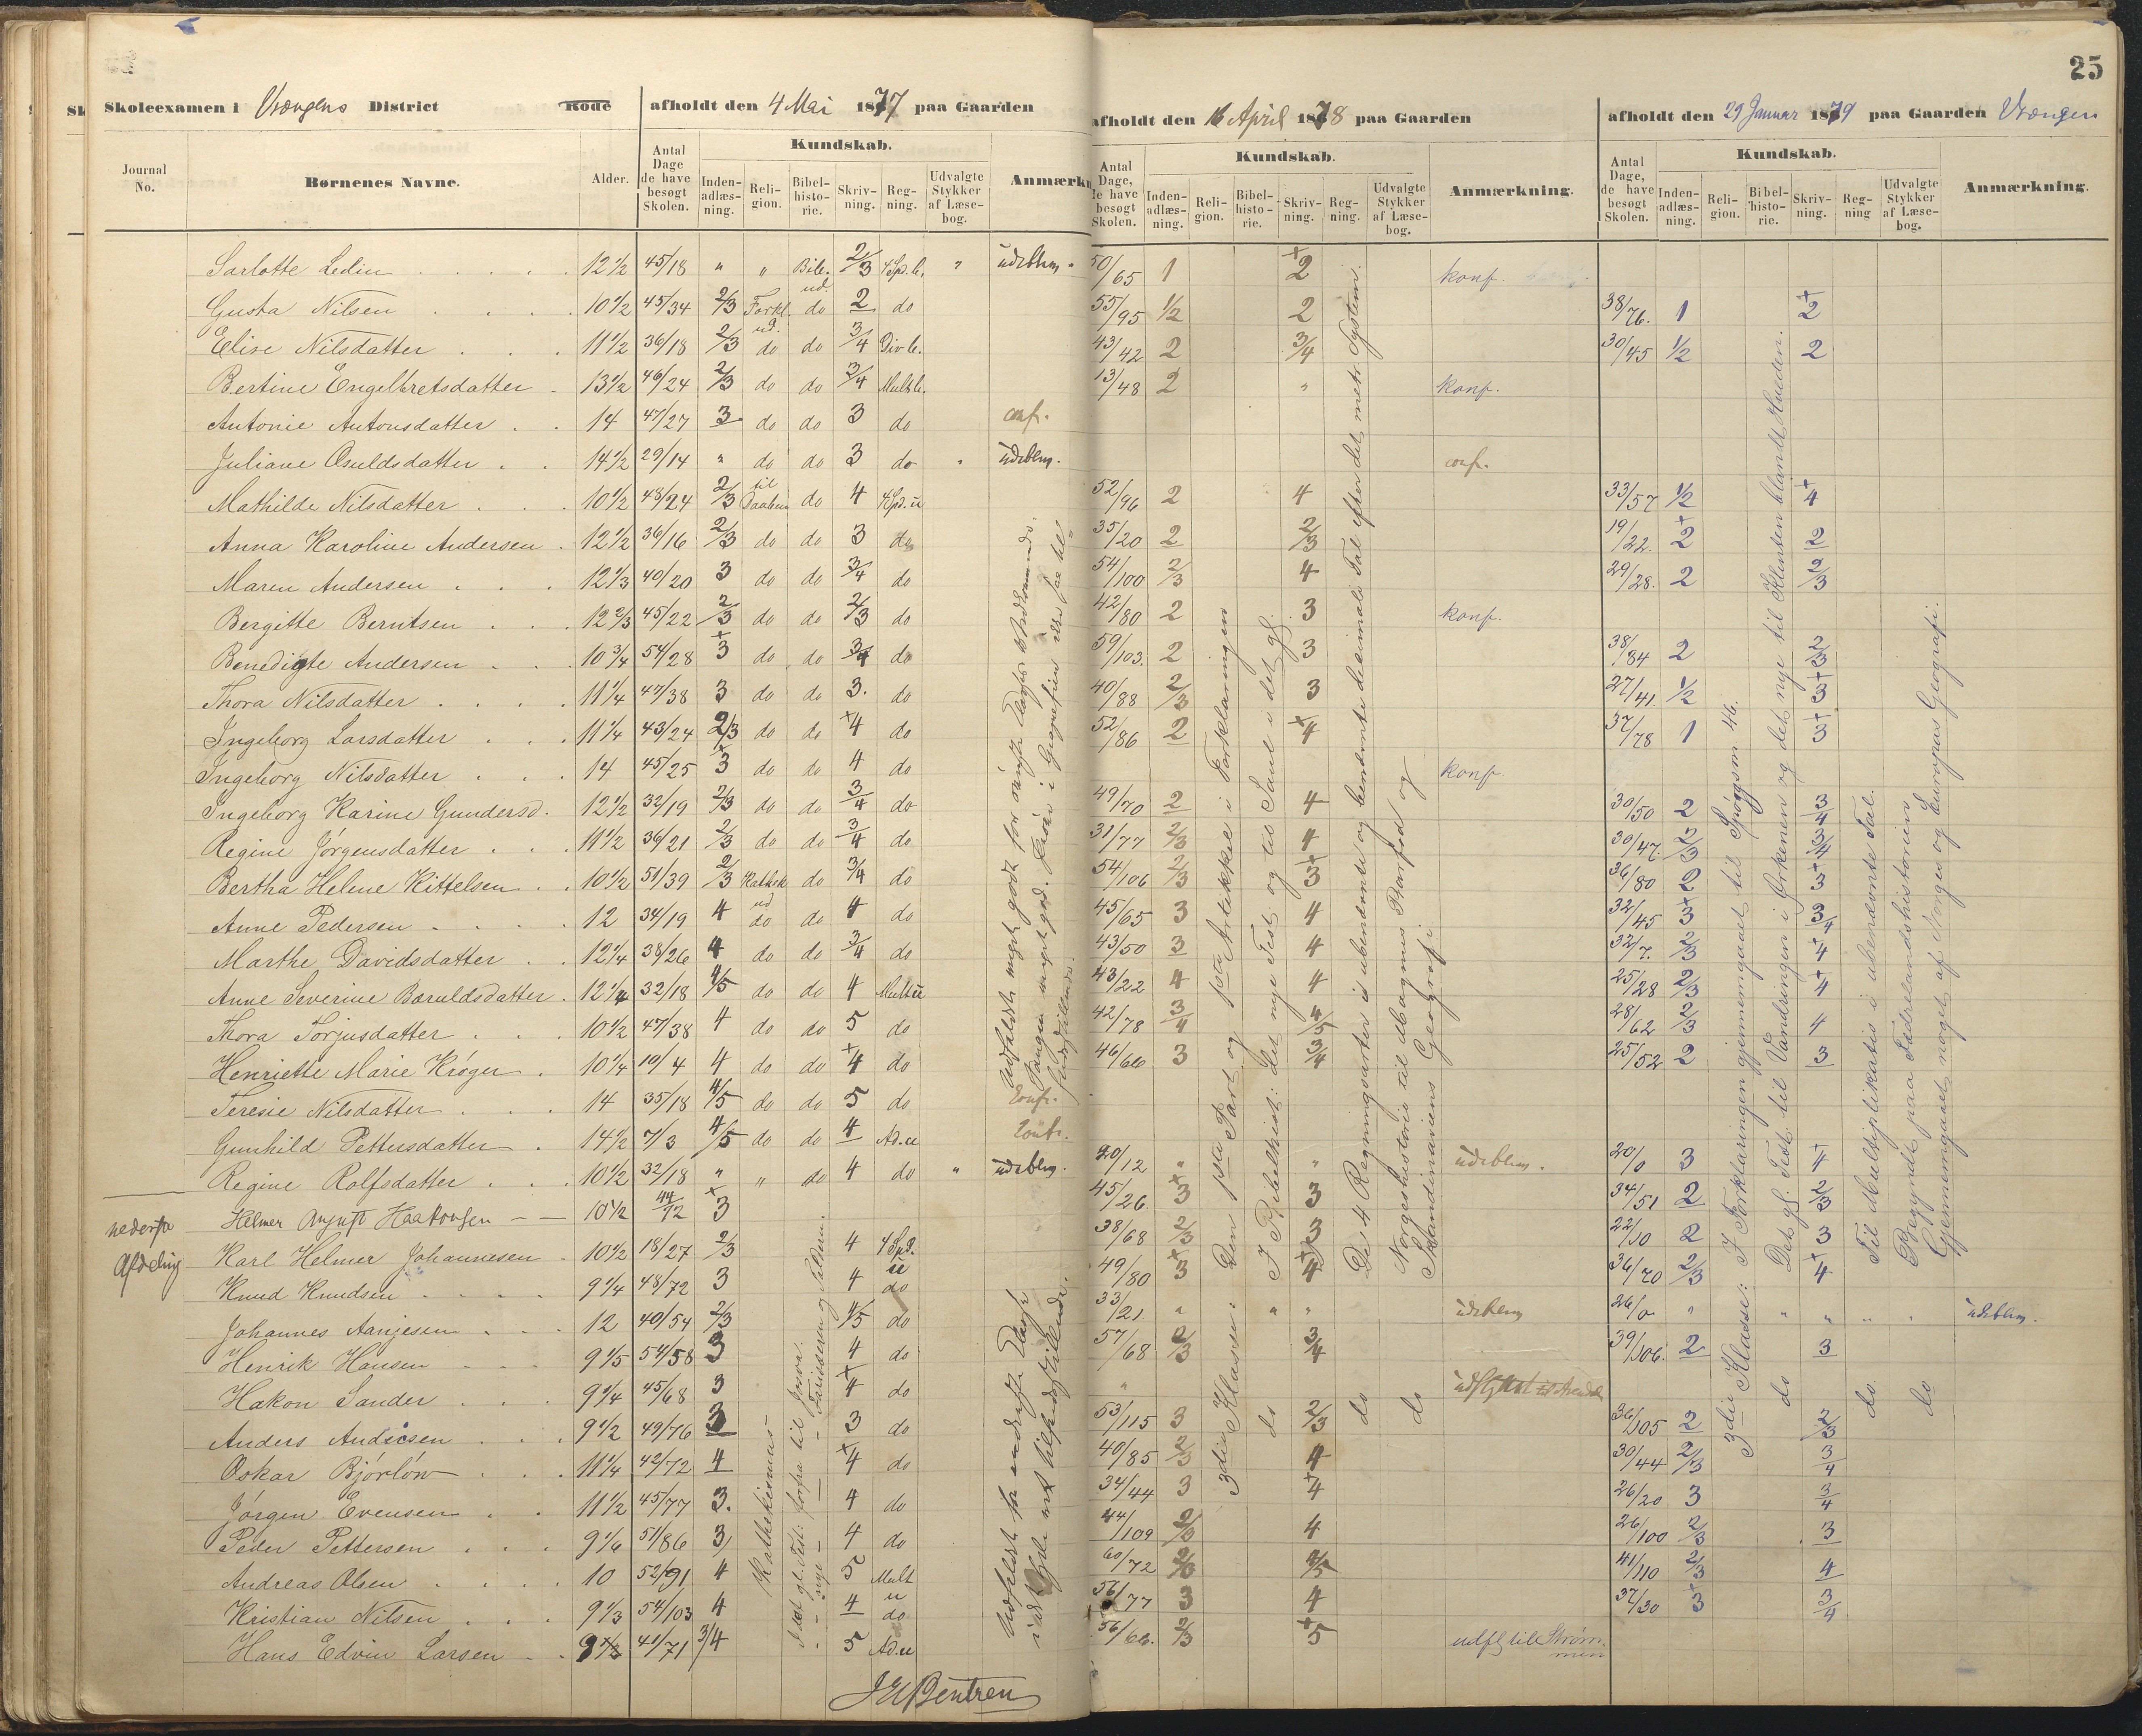 25
Skoleexamen i Vrængens District Rode afholdt den 4 Mai 1877 paa Gaarden
afholdt den 16 April 1878 paa Gaarden
afholdt den 29 Januar 1879 paa Gaarden Vrængen
Journal No. Børnenes Navne. Alder. Antal Dage de have besøgt Skolen. Kundskab. Inden-adlæs-ning. Reli-gion. Bibel-histo-rie. Skriv-ning. Reg-ning. Udvalgte Stykker af Læse-bog. Anmærkn
Antal Dage, de have besøgt Skolen. Kundskab. Inden-adlæs-ning. Reli-gion. Bibel-histo-rie. Skriv-ning. Reg-ning. Udvalgte Stykker af Læse-bog. Anmærkning.
Antal Dage, de have besøgt Skolen. Kundskab. Inden-adlæs-ning. Reli-gion. Bibel-histo-rie. Skriv-ning. Reg-ning Udvalgte Stykker af Læse-bog. Anmærkning.
Sarlotte Ledin 12 1/2 45/18 " " 2/3 " udebleven 50/65 1 2 konf.
Gusta Nilsen 10 1/2 45/34 2/3 Forkl. ud. do 2 do 55/95 1/2 2 38/76. 1 2
Elise Nilsdatter 11 1/2 36/18 2/3 do do 3/4 43/42 2 3/4 30/45 1/2 2
Bertine Engelbretsdatter 13 1/2 46/24 2/3 do do 3/4 13/48 2 " konf.
Antonie Antonsdatter 14 47/27 3 do do 3 do conf.
Juliane Osuldsdatter 14 1/2 29/14 " do do 3 do " udeblev. conf.
Mathilde Nilsdatter 10 1/2 48/24 2/3 do 4 52/96 2 4 33/57 1/2 4
Anna Karoline Andersen 12 1/2 36/16 2/3 do do 3 do 35/20 2 2/3 19/22. 2 2
Maren Andersen 12 1/3 40/20 3 do do 3/4 do 54/100 2/3 4 29/28. 2 2/3
Bergitte Berntsen 12 2/3 45/22 2/3 do do 2/3 do 42/80 2 3 konf.
Benedigte Andersen 10 3/4 54/28 3 do do 3/4 do 59/103. 2 3 38/84 2 2/3
Thora Nilsdatter 11 1/4 47/38 3 do do 3. do 40/88 2/3 3 27/41. 1/2 3
Ingeborg Larsdatter 11 1/4 43/24 2/3 do do 4 do 52/86 2 4 37/78 1 3
Ingeborg Nilsdatter 14 45/25 3 do do 4 do konf.
Ingeborg Karine Gundersd. 12 1/2 32/19 2/3 do do 3/4 do 49/70 2 4 30/50 2 3/4
Regine Jørgensdatter 11 1/2 36/21 2/3 do do 3/4 do 31/77 2/3 4 30/47. 2/3 3/4
Bertha Helene Kittelsen 10 1/2 51/39 2/3 Kathek do 3/4 do 54/106 2/3 3 36/80 2 3
Anne Pedersen 12 34/19 4 ud do do 4 do 45/65 3 4 32/45 3 3/4
Marthe Davidsdatter 12 1/4 38/26 4 do do 3/4 do 43/50 3 4 32/7. 2/3 4
Anne Severine Baruldsdatter 12 1/4 32/18 4/5 do do 4 43/22 4 4 25/28 2/3 4
Thora Torjusdatter 10 1/2 47/38 4 do do 5 do 42/78 3/4 4/5 28/62 2/3 4
Henriette Marie Krøger 10 1/4 10/4 4 do do 4 do 46/60 3 3/4 25/52 2 3
Teresie Nilsdatter 14 35/18 4/5 do do 5 do Conf.
Gunhild Pettersdatter 14 1/2 7/3 4/5 do do 4 Ad.u Conf.
Regine Rolfsdatter 10 1/2 32/18 " " do 4 do " udeblev. 20/12 " " udeblev. 20/0 3 4
nederste Afdeling
Helmer August Haakonsen 10 1/2 44/72 3 45/26. 3 3 34/51 2 2/3
Karl Helmer Johannesen 10 1/2 18/27 2/3 4 4 Spd. 38/68 2/3 3 22/10 2 3
Knud Knudsen 9 1/4 48/72 3 4 u do 49/80 3 4 36/70 2/3 4
Johannes Aanjesen 12 40/54 2/3 4/5 do 33/21 " " " udeblev 26/0 " " " " " udeblev.
Henrik Hansen 9 1/5 54/58 3 4 do 57/68 2/3 3/4 39/106. 2 3
Hakon Sander 9 1/4 45/68 3 4 do " udflyttet til Arendal
Anders Andersen 9 1/2 49/76 3 3 do 53/115 3 do 2/3 do do 36/105 2 do 2/3 do do
Oskar Bjørløw 11 1/4 42/72 4 4 do 40/85 2/3 4 30/44 2/3 3/4
Jørgen Evensen 11 1/2 45/77 3. 4 do 34/44 3 4 26/20 3 3/4
Peder Pettersen 9 1/6 51/86 3 4 do 44/109 2/3 4 26/100 2/3 3
Andreas Olsen 10 52/91 4 5 Mult 60/72 2/3 4/5 41/110 2/3 4
Kristian Nilsen 9 1/3 54/103 4 4 u do 56/77 3 4 37/30 3 3/4
Hans Edvin Larsen 9 1/2 41/71 3/4 5 Ad.u 56/66. 2/3 5 udfl til Strømmen
Kathekismus
Udfaldet meget godt for øverste Klasses Vedkommende. Sangen meget god.
3die Klasse: Den 1ste Part og 1ste Artikkel i Forklaringen
I Bibelhist: det nye Test. og til Saul i det gl.
De 4 Regningsarter i ubenævnte og benævnte decimale Tal efter det metr. System.
Norgeshistorie til Magnus Barfod og Skandinaviens Geografi
3die Klasse: I Forklaringen gjennemgaaet til Spørgsm 46.
Det gl. Test. til Vandringen i Ørkenen og det nye til Klinten blandt Hveden.
Til Multiplikation i ubenævnte Tal.
Begyndt paa Fædrelandshistorien
Gjennemgaaet noget af Norges og Europas Geografi.
J E Bentsen